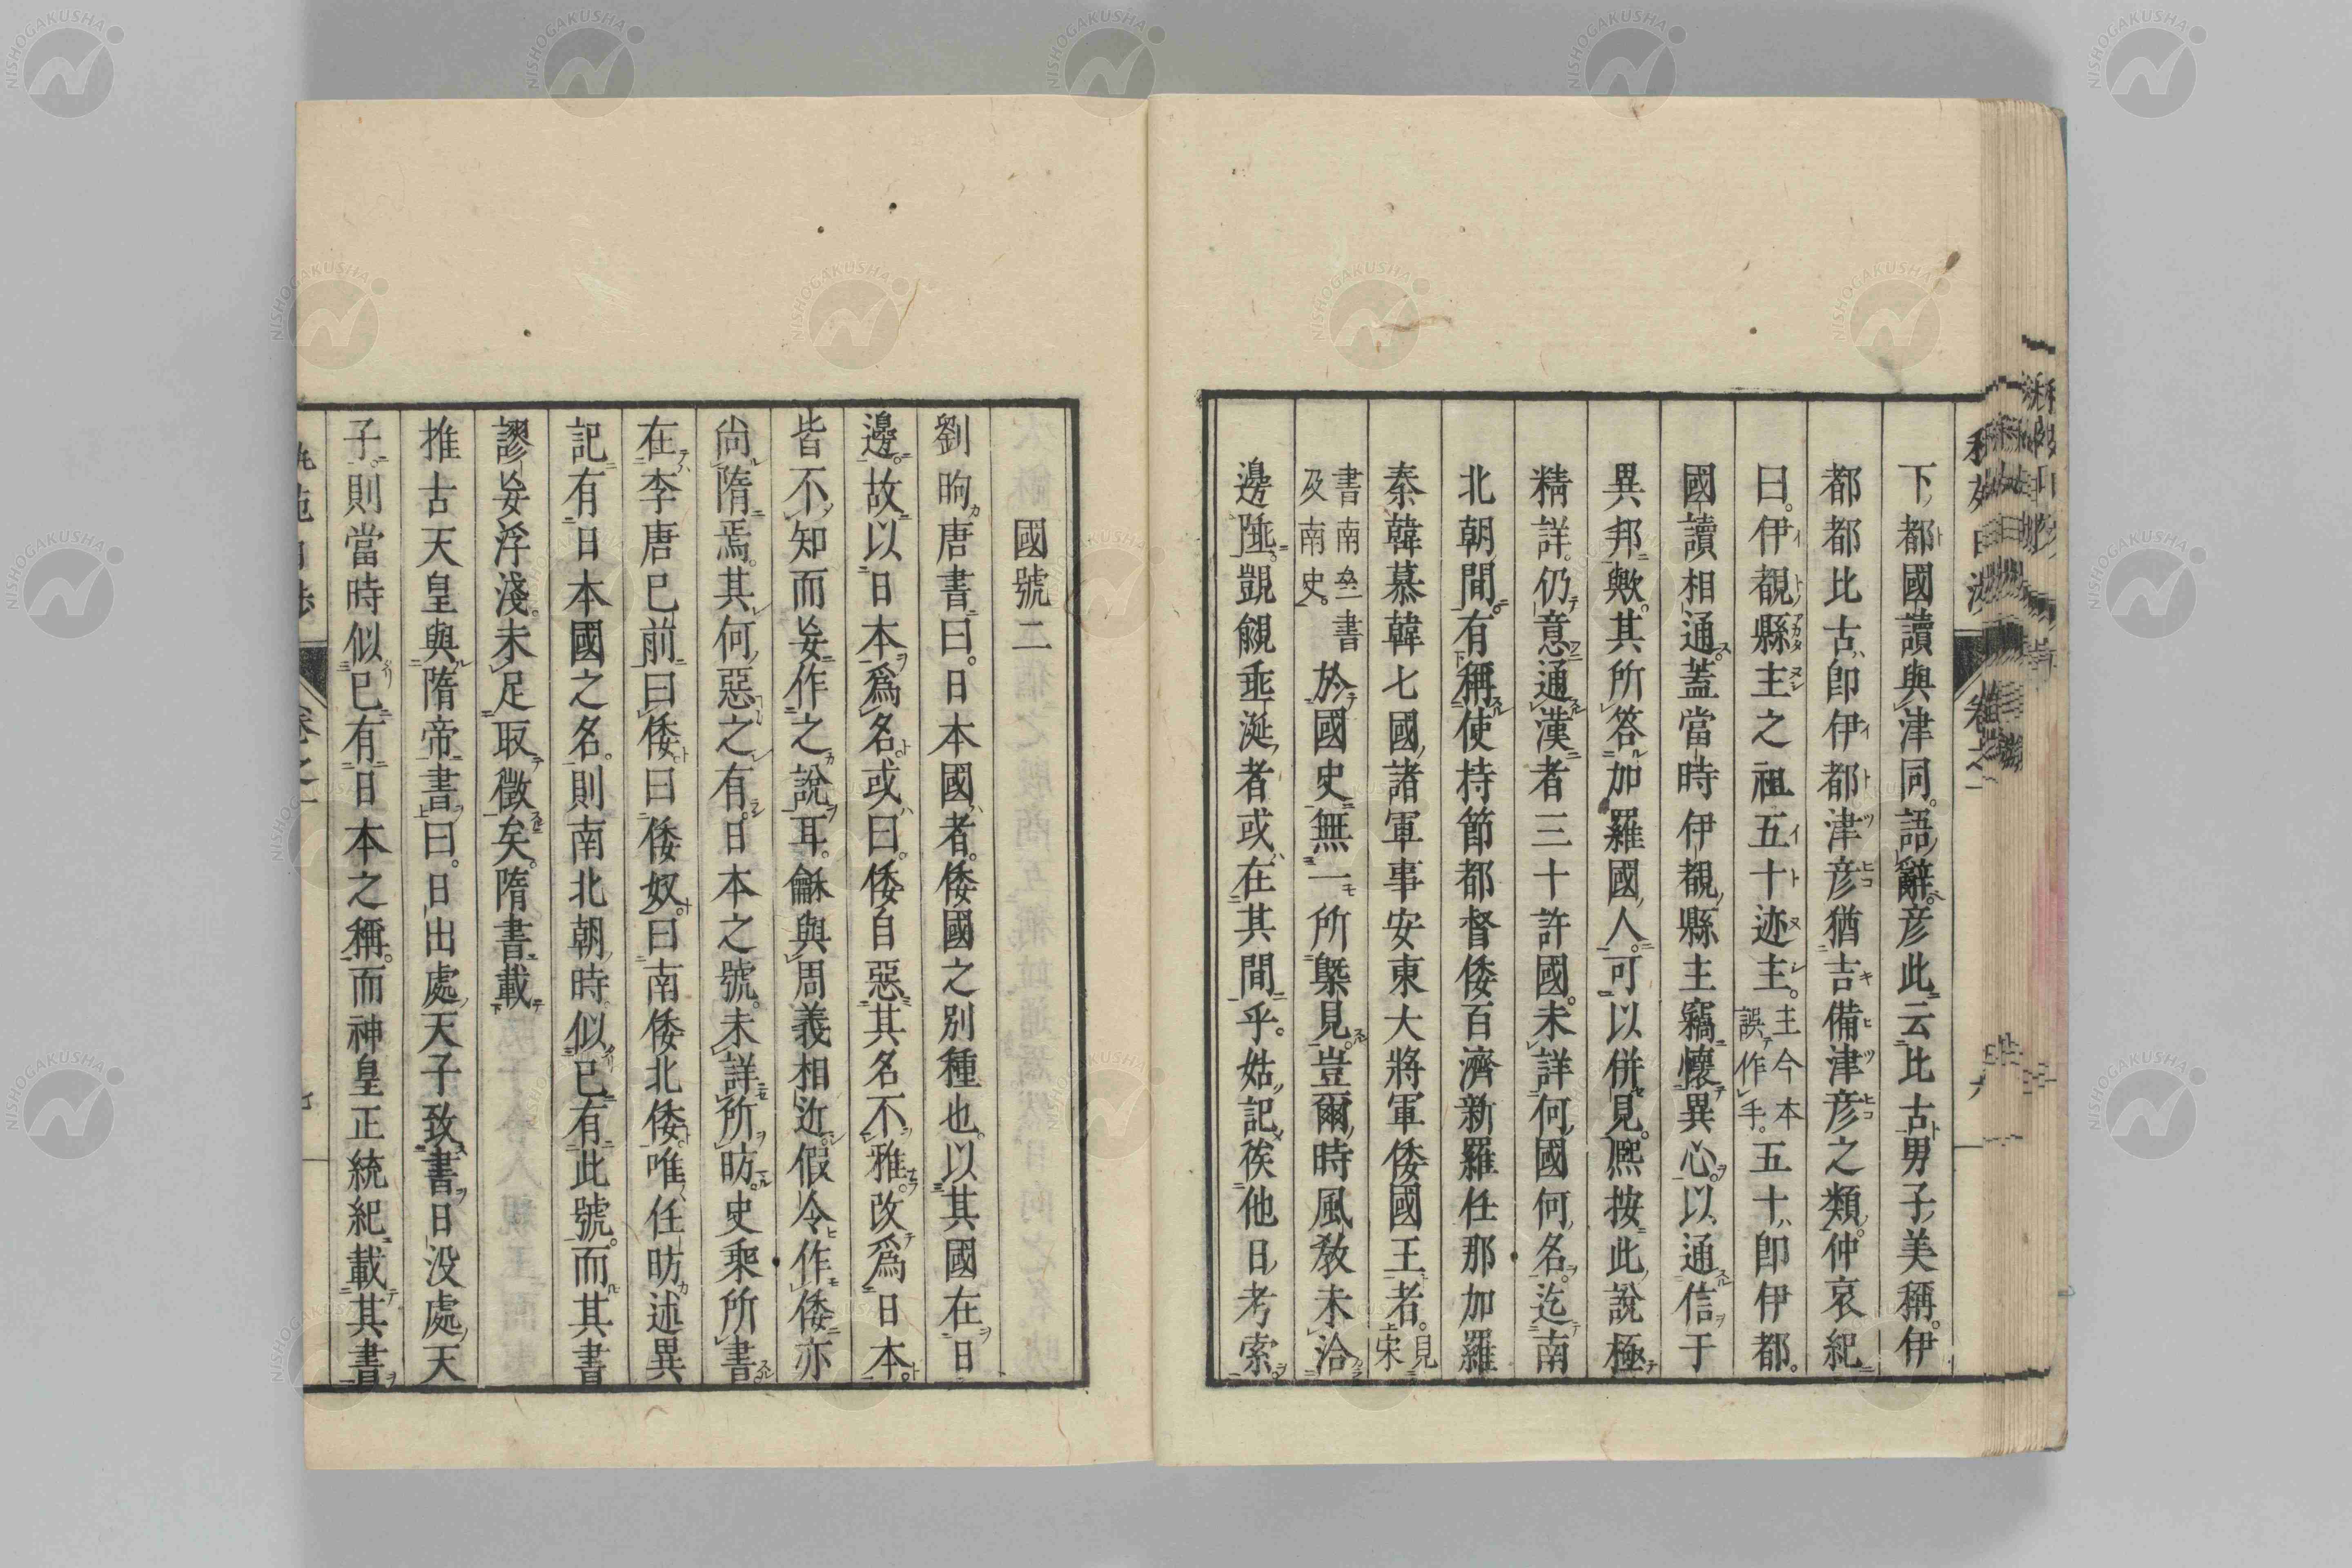 下都國讀與津同語辭彦此云比古男子美稱伊
都都比古即伊都津彦猶吉備津彦之類仲哀紀
曰伊覩縣主之祖五十迹主主今本誤作手五十即伊都
國讀相通蓋當時伊覩縣主竊懷異心以通信于
異邦歟其所答加羅國人可以併見熈按此說極
精詳仍意通漢者三十許國未詳何國何名迄南
北朝間有稱使持節都督倭百濟新羅任那加羅
秦韓慕韓七國諸軍事安東大將軍倭國王者見宋
書南齊書及南史於國史無一所槩見豈爾時風教未洽
邊陲覬覦乖涎者或在其間乎姑記俟他日考索
國號二
劉昫唐書曰日本國者倭國之別種也以其國在日
邊故以日本爲名或曰倭自惡其名不雅改爲日本
皆不知而妄作之說耳龢與周義相近假令作倭亦
尚隋焉其何惡之有日本之號未詳所昉史乘所書
在李唐已前曰倭曰倭奴曰南倭北倭唯任昉述異
記有日本國之名則南北朝時似已有此號而其書
謬妄浮淺未足取徵矣隋書載
推古天皇與隋帝書曰日出處天子致書日没處天
子則當時似已有日本之稱而神皇正統紀載其書